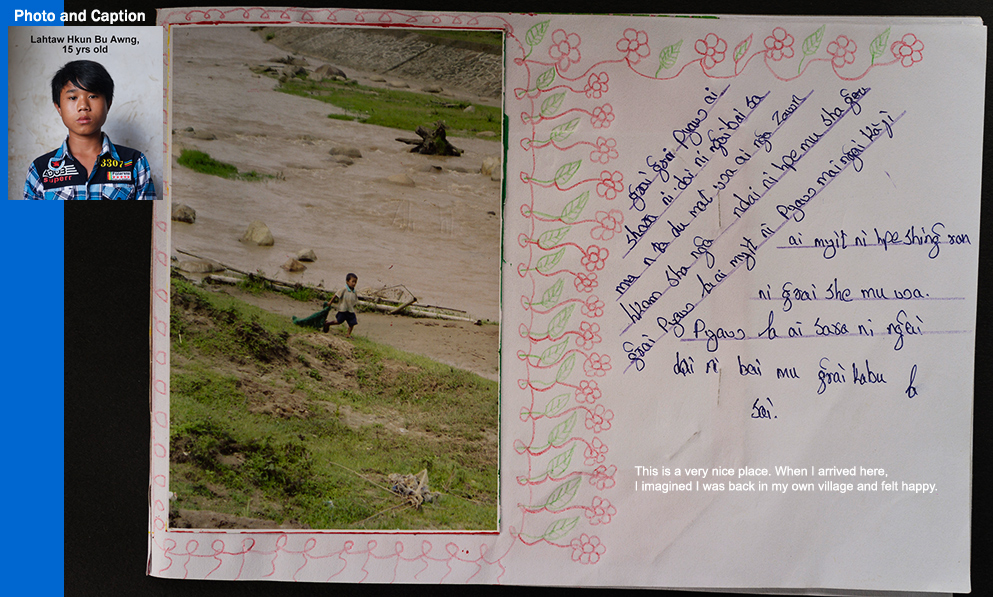 Photo and Caption
Lahtaw Hkun Bu Awng,
15 yrs old
3307
superr
grai grai pyaw ai
shara ni. dai ni sa
du mat wa ai nga zawn
hkam sha nga ndai ni hpe mu sha
grai pyaw la ai myit ni pyaw mai ngai kaji
ai myit ni hpe shing ran
ni grai she mu wa.
Pyaw la ai sara ni ngai
dai ni bai mu grai kabu la
sai.
This is a very nice place. When I arrived here,
I imagined I was back in my own village and felt happy.